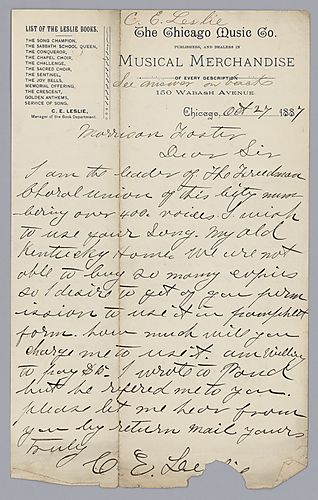 C. E. Leslie
LIST OF THE LESLIE BOOKS.
THE SONG CHAMPION,
THE SABBATH SCHOOL QUEEN,
THE CONQUEROR,
THE CHAPEL CHOIR,
THE CHALLENGE,
THE SACRED CHOIR,
THE SENTINEL,
THE JOY BELLS,
MEMORIAL OFFERING,
THE CRESCENT,
GOLDEN ANTHEMS,
SERVICE OF SONG.
C. E. LESLIE,
Manager of the Book Department.
The Chicago Music Co.
PUBLISHERS, AND DEALERS IN
MUSICAL MERCHANDISE
OF EVERY DESCRIPTION
See answer on back
150 WABASH AVENUE.
Chicago, Oct 27 1887
Morrison Foster
Dear Sir
I am the leader of The Freedman
Choral Union of this City num
bering over 400 voices. I wish
to use your Song. My old
Kentucky Home. We are not
able to buy so many copies
so I desire to get of you perm
ission to use it in pamphlett
form. how much will you
Charge me to use it. am Willing
to pay $5- I wrote to Pond
but he refered me to you.
please let me hear from
you by return mail yours
truly
C. E. Leslie